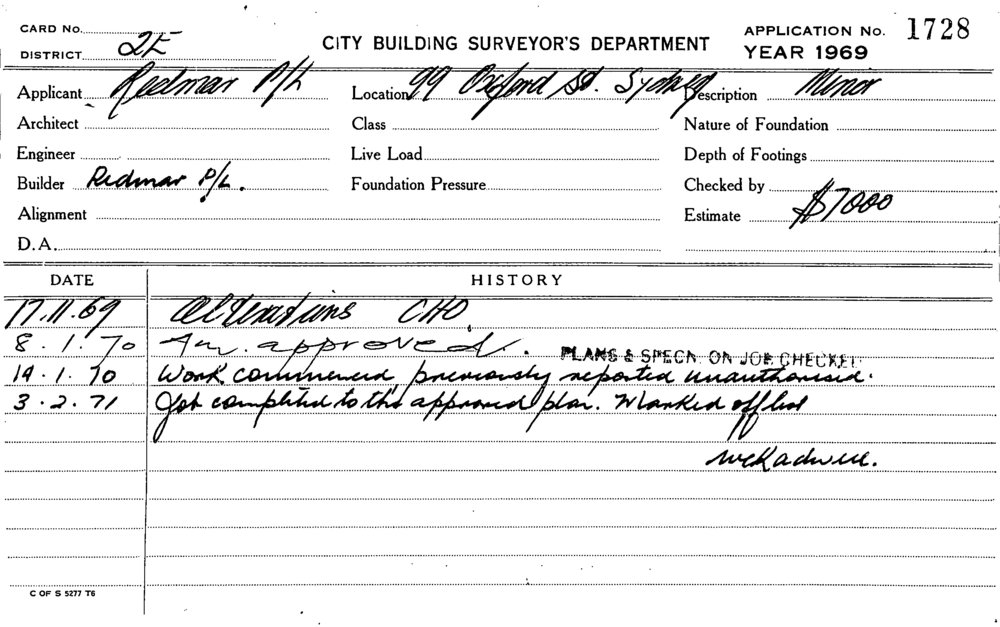 CARD No.
DISTRICT 2E
CITY BUILDING SURVEYOR'S DEPARTMENT
APPLICATION No. 1728
YEAR 1969
Applicant Redmar P/L
Location 99 Oxford St. Sydney
Description Minor
Architect
Class
Nature of Foundation
Engineer
Live Load
Depth of Footings
Builder Redmar P/L.
Foundation Pressure
Checked by
Alignment
Estimate $7000
D.A.
DATE HISTORY
17.11.69 Alterations CHO
8.1.70 approved.
PLANS & SPECN. ON JOB CHECKED
19.1.70 Work commenced, previously reported unauthorised.
3.2.71 Job completed to the approved plan. Marked off list
C OF S 5277 T6